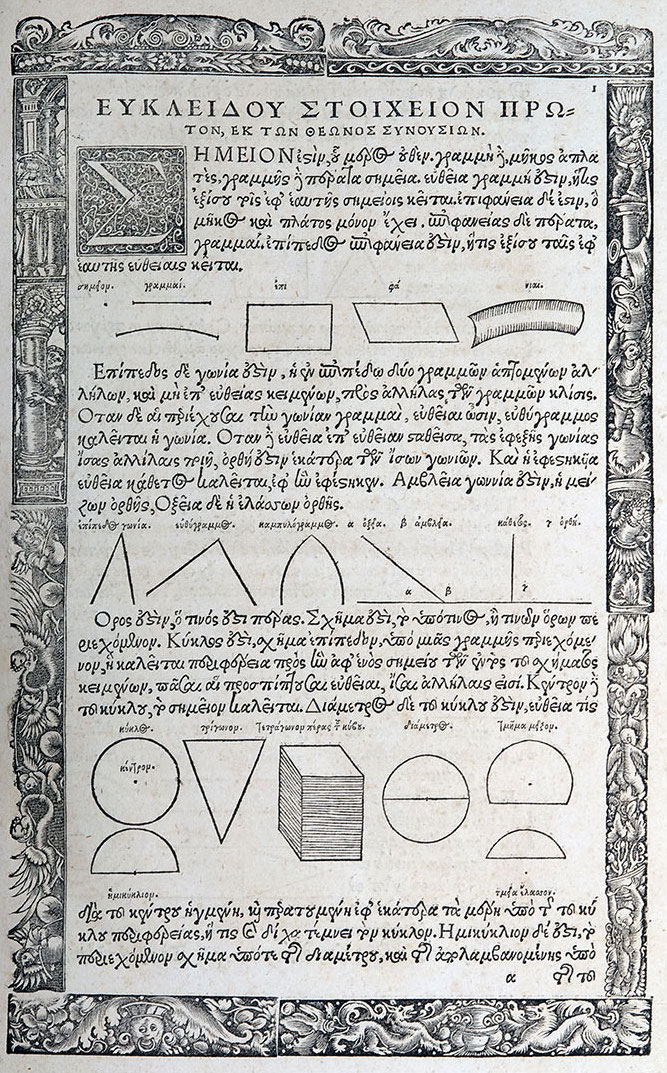 1
ΕΥΚΛΕΙΔΟΥ ΣΤΟΙΧΕΙΟΝ ΠΡΩ=
ΤΟΝ, ΕΚ ΤΩΝ ΘΕΩΝΟΣ ΣΥΝΟΥΣΙΩΝ.
ΣΗΜΕΙΟΝ ἐστὶν, οὗ μέρος οὐθέν. γραμμὴ δὲ, μῆκος ἀπλα
τές, γραμμῆς δὲ πέρατα σημεῖα. εὐθεῖα γραμμή ἐστιν, ἥτις
ἐξίσου τοῖς ἐφ' ἑαυτῆς σημείοις κεῖται. ἐπιφάνεια δέ ἐστιν, ὃ
μῆκος καὶ πλάτος μόνον ἔχει. ἐπιφανείας δὲ πέρατα,
γραμμαί. ἐπίπεδος ἐπιφάνειά ἐστιν, ἥτις ἐξίσου ταῖς ἐφ'
ἑαυτῆς εὐθείαις κεῖται.
σημεῖον. γραμμαί. ἐπι φά νιαι.
Ἐπίπεδος δὲ γωνία ἐστὶν, ἡ ἐν ἐπιπέδῳ δύο γραμμῶν ἁπτομένων ἀλ-
λήλων, καὶ μὴ ἐπ' εὐθείας κειμένων, πρὸς ἀλλήλας τῶν γραμμῶν κλίσις.
Ὅταν δὲ αἱ περιέχουσαι τὴν γωνίαν γραμμαὶ, εὐθεῖαι ὦσιν, εὐθύγραμμος
καλεῖται ἡ γωνία. Ὅταν δὲ εὐθεῖα ἐπ' εὐθεῖαν σταθεῖσα, τὰς ἐφεξῆς γωνίας
ἴσας ἀλλήλαις ποιῇ, ὀρθή ἐστιν ἑκατέρα τῶν ἴσων γωνιῶν. Καὶ ἡ ἐφεστηκῦα
εὐθεῖα κάθετος καλεῖται, ἐφ' ἣν ἐφέστηκεν. Ἀμβλεῖα γωννία ἐστὶν, ἡ μεί-
ζων ὀρθῆς, Ὀξεῖα δὲ ἡ ἐλάσσων ὀρθῆς.
ἐπίπεδος γωνία. εὐθύγραμμος. καμπυλόγραμμος. α ὀξεῖα. β ἀμβλεῖα. κάθετος. γ ὀρθή.
α β γ
Ὅρος ἐστὶν, ὅ τινός ἐστι πέρας. Σχῆμά ἐστι, τὸ ὑπό τινος, ἤ τινων ὅρων πε
ριεχόμενον. Κύκλος ἐστὶ, σχῆμα ἐπίπεδον, ὑπὸ μιᾶς γραμμῆς περιεχόμε-
νον, ἣ καλεῖται περιφέρεια πρὸς ἣν ἀφ' ἑνὸς σημείου τῶν ἐντὸς τοῦ σχήματος
κειμένων, πᾶσαι αἱ προσπίπτουσαι εὐθεῖαι, ἴσαι ἀλλήλαις εἰσί. Κέντρον δὲ
τοῦ κύκλου, τὸ σημεῖον καλεῖται. Διάμετρος δὲ τοῦ κύκλου ἐστὶν, εὐθεῖά τις
κύκλος. τρίγωνον. τετράγωνον πέρας τοῦ κύβου. διάμετρος. τμῆμα μεῖζον.
κέντρον.
ἡμικύκλιον. τμῆμα ἔλασσον.
διὰ τοῦ κέντρου ἠγμένη, καὶ περατουμένη ἐφ' ἑκάτερα τὰ μέρη ὑπὸ τῆς τοῦ κύ
κλου περιφερείας, ἥτις καὶ δίχα τέμνει τὸν κύκλον. Ἡμικύκλιον δέ ἐστι, τὸ
περιεχόμενον σχῆμα ὑπό τε τῆς διαμέτρου, καὶ τῆς ἀπολαμβανομένης ὑπὸ
α τῆς τοῦ